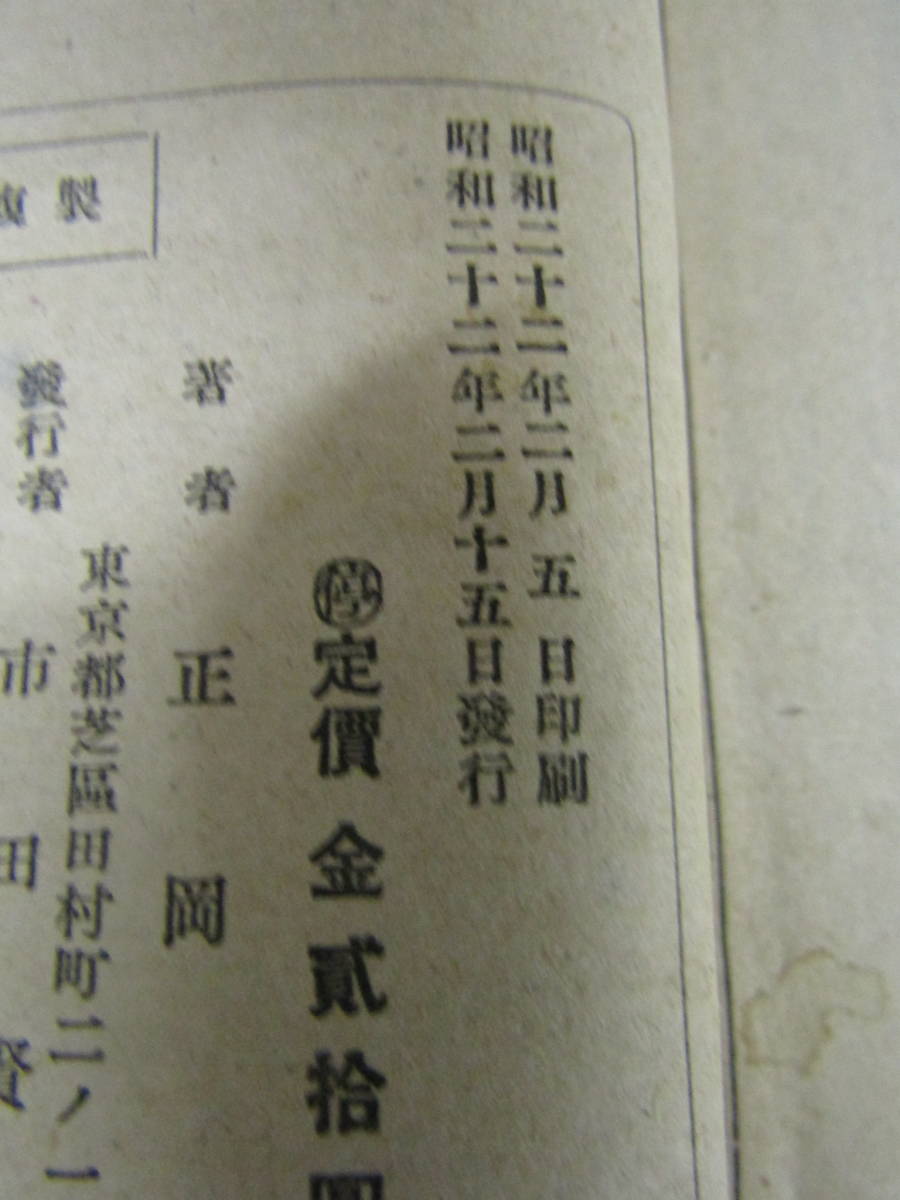 昭和二十二年二月五日印刷
昭和二十二年二月十五日發行
停定價金貳拾圓
著者 正岡
東京都芝區田村町二ノ一
發行者 市田資
複製